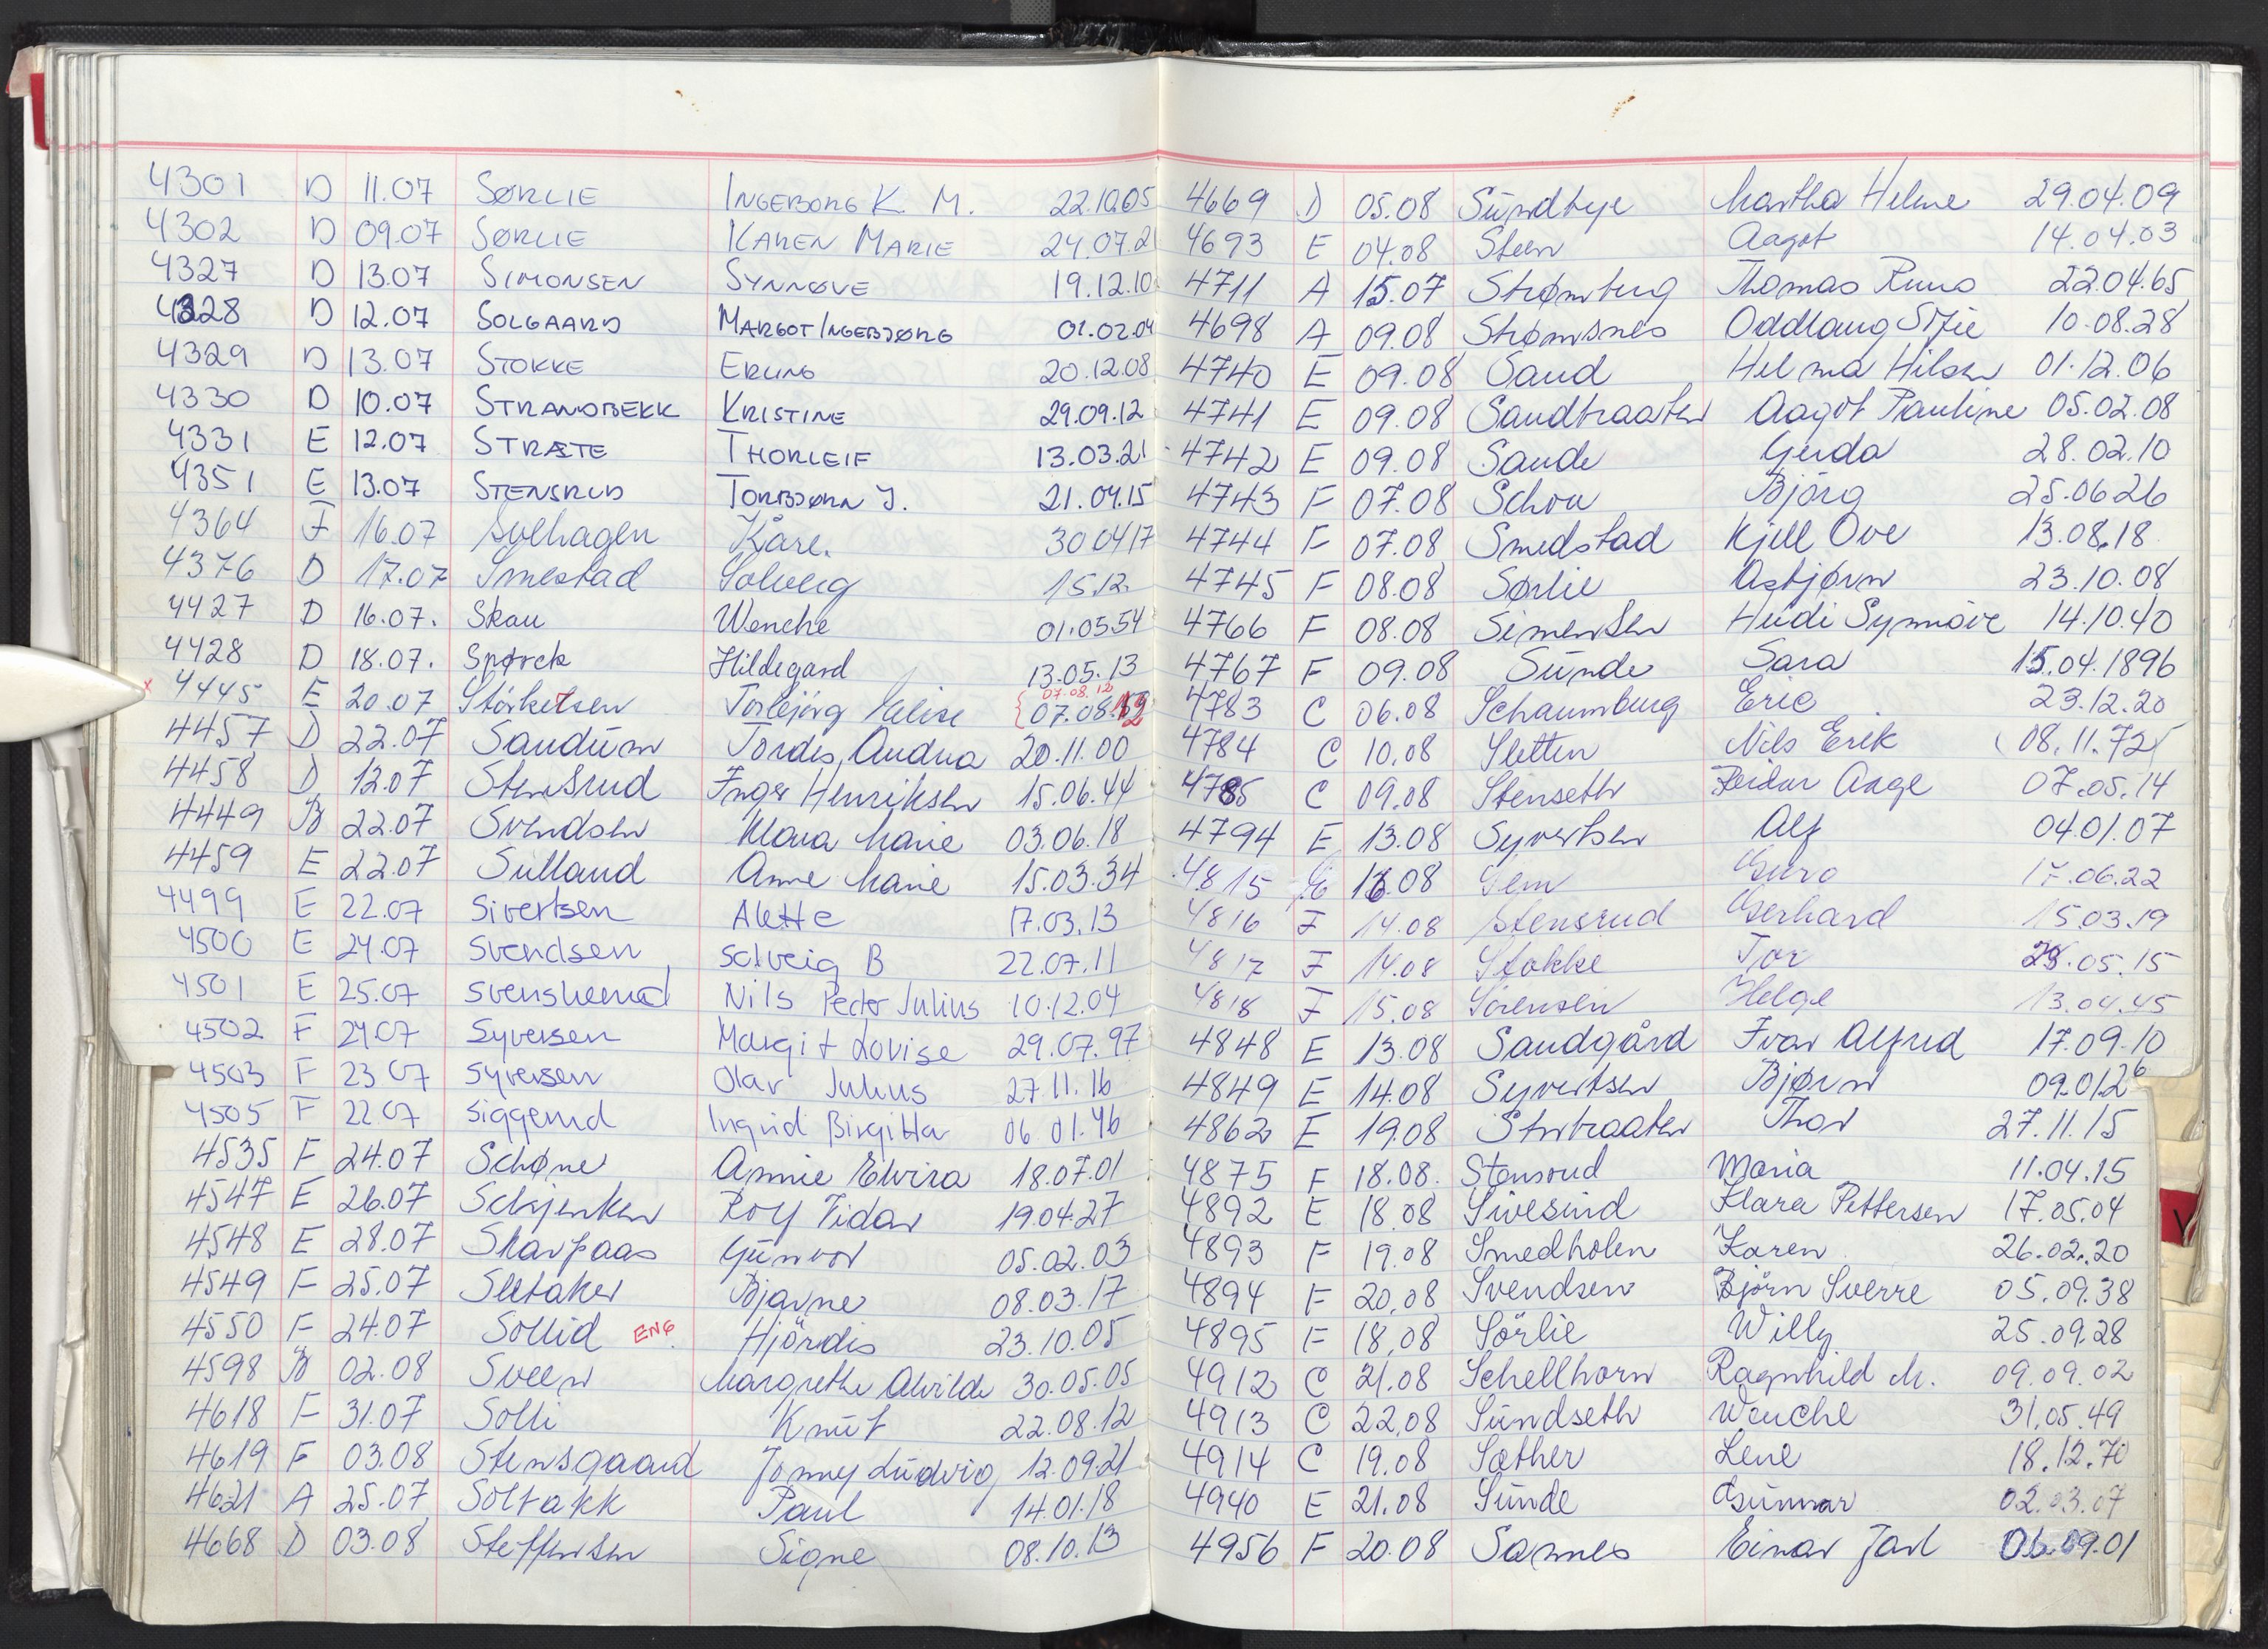 4301 D 11.07 SØRLIE INGEBORG K. M. 22.10.05
4302 D 09.07 SØRLIE KAREN MARIE 24.07.2
4327 D 13.07 SIMONSEN SYNNØVE 19.12.10
4328 D 12.07 SOLGAARD MARGOT INGEBJØRG 01.02.04
4329 D 13.07 STOKKE ERLING 20.12.08
4330 D 10.07 STRANDBEKK KRISTINE 29.09.12
4331 E 12.07 STRÆTE THORLEIF 13.03.21
4351 E 13.07 STENSRUD TORBJØRN J. 21.04.15
4364 F 16.07 Solhagen Kåre. 30 04 17
4376 D 17.07 Smestad Solveig 15.12.
4427 D 16.07. Skau Wenche 01.05.54
4428 D 18.07. Spørck Hildegard 13.05.13
x 4445 E 20.07 Størkersen Torbjørg Elise 07.08.12
4457 D 22.07 Sandum Tordis, Andrea 20.11.00
4458 D 12.07 Stensrud Inger Henriksen 15.06.44
4449 B 22.07 Svendsen Klara Marie 03.06.18
4459 E 22.07 Sulland Anne Marie 15.03.34
4499 E 22.07 Sivertsen Alette 17.03.13
4500 E 24.07 Svendsen Solveig B 22.07.11
4501 E 25.07 Nils Peder Julius 10.12.04
4502 F 24.07 Syversen Margit Lovise 29.07.97
4503 F 23 07 Syversen Olav Julius 27 11.16
4505 F 22.07 Siggerud Ingrid Birgitta 06 01.46
4535 F 24.07 Schøne Annie Elvira 18.07.01
4547 E 26.07 Schjenken Rolf Vidar 19.04.27
4548 E 28.07 Skarpaas Gunvor 05.02.03
4549 F 25.07 Sletaker Bjarne 08.03.17
4550 F 24.07 Sollid ENG. Hjørdis 23.10.05
4598 B 02.08 Sveen Margrethe Alvilde 30.05.05
4618 F 31.07 Solli Knut 22.08.12
4619 F 03.08 Stensgaard Jonny Ludvig 12.09.21
4621 A 25.07 Soltakk Paul 14.01.18
4668 D 03.08 Steffensen Signe 08.10.13
4669 D 05.08 Sundbye Martha Helene 29.04.09
4693 E 04.08 Steen Aagot 14.04.03
4711 A 15.07 Strømberg Thomas Runo 22.04.65
4698 A 09.08 Strømsnes Oddlaug 10.08.28
4740 E 09.08 Sand Helma 01.12.06
4741 E 09.08 Sandbraaten Aagot Pauline 05.02.08
4742 E 09.08 Sande Gerda 28.02.10
4743 F 07.08 Schou Bjørg 25.06 26
4744 F 07.08 Smedstad Kjell Ove 13.08.18
4745 F 08.08 Sørlie Asbjørn 23.10.08
4766 F 08.08 Simensen Heidi Synnöve 14.10.40
4767 F 09.08 Sunde Sara 15.04.1896
4783 C 06.08 Schaumburg Eric 23.12.20
4784 C 10.08 Sletten Nils Erik 08.11.72
4785 C 09.08 Stenseth Reidar Aage 07.05.14
4794 E 13.08 Syvertsen Alf 04.01.07
4815 16.08 Sem Guro 17.06.22
4816 F 14.08 Stensrud Gerhard 15.03.19
4817 F 14.08 Stokke Tor 05.15
4818 F 15.08 Sörensen Helge 13.04.45
4848 E 13.08 Sandgård Ivar Alfred 17.09.10
4849 E 14.08 Syvertsen Bjørn 09.01.26
4862 E 19.08 Thor 27.11.15
4875 F 18.08. Stensrud Maria 11.04.15
4892 E 18.08 Sivesind Klara Pettersen 17.05.04
4893 F 19.08 Smedholen Karen 26.02.20
4894 F 20.08 Svendsen Björn Sverre 05.09.38
4895 F 18.08 Sörlie Willy 25.09.28
4912 C 21.08 Schellhorn Ragnhild M. 09.09.02
4913 C 22.08 Sundseth Wenche 31.05.49
4914 C 19.08 Sæther Lene 18.12.70
4940 E 21.08 Sunde Gunnar 02.03.07
4956 F 20.08 Sannes Einar Jarl 06.09.01